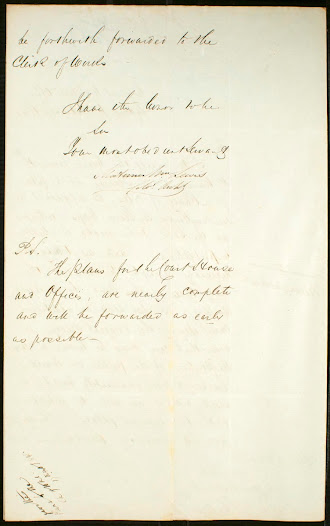 be forthwith forwarded to the
Clerk of Works
I have the honor to be
Sir
Your most obedient Servant
Mortimer Wm Lewis
Col Archt
P.S.
The plans for the Court House
and Offices, are nearly complete
and will be forwarded as early
as possible –